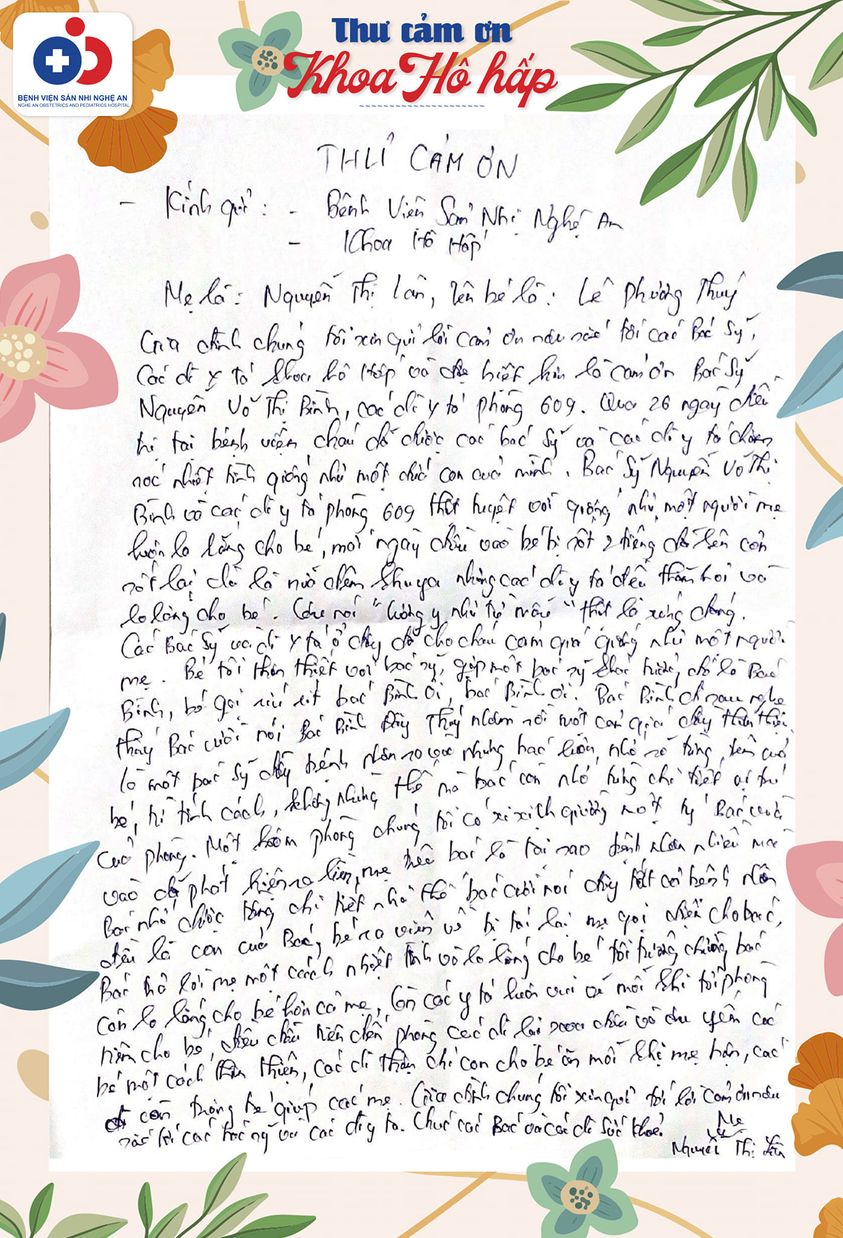 BỆNH VIỆN SẢN NHI NGHỆ AN
NGHE AN OBSTETRICS AND PEDIATRICS HOSPITAL
Thư cảm ơn
Khoa Hô hấp
THƯ CẢM ƠN
- Kính gửi: - Bệnh Viện Sản Nhi Nghệ An
- Khoa Hô Hấp
Mẹ là: Nguyễn Thị Lan, tên bé là: Lê Phương Thuý
Gia đình chúng tôi xin gửi lời cảm ơn sâu sắc tới các Bác Sỹ,
Các dì y tá khoa hô hấp và đặc biệt hơn là cảm ơn Bác Sỹ
Nguyễn Võ Thị Bình, các dì y tá phòng 609. Qua 26 ngày điều
trị tại bệnh viện cháu đã được các bác sỹ và các dì y tá chăm
sóc nhiệt tình giống như một đứa con của mình. Bác Sỹ Nguyễn Võ Thị
Bình và các dì y tá phòng 609 thật tuyệt vời giống như một người mẹ
luôn lo lắng cho bé, mỗi ngày đầu vào bé bị sốt 2 tiếng đã lên cơn
sốt lại dù là nửa đêm khuya nhưng các dì y tá đều thăm hỏi và
lo lắng cho bé. Câu nói "Lương y như từ mẫu" thật là xứng đáng.
Các Bác Sỹ và dì y tá ở đây đã cho cháu cảm giác giống như một người
mẹ. Bé tôi thân thiết với bác sỹ, gặp một bác sỹ khác tưởng đó là Bác
Bình, bé gọi ríu rít bác Bình ơi, bác Bình ơi. Bác Bình đi sau nghe
thấy Bác cười nói Bác Bình Đây Thuý nhầm rồi một cảm giác đầy thân thiện
là một bác sỹ đầy bệnh nhân ra vào nhưng bác luôn nhớ rõ từng tên của
bé, tính cách, không những thế mà bác còn nhớ từng chi tiết vị trí
của phòng. Một hôm phòng chúng tôi có xê xích giường một tý Bác vừa
vào đã phát hiện ra liền, mẹ hỏi bác là tại sao bệnh nhân nhiều mà
Bác nhớ được từng chi tiết như thế bác cười nói đây tất cả bệnh nhân
đều là con của Bác, bé ra viện về bị tái lại mẹ gọi điện cho bác,
Bác trả lời mẹ một cách nhiệt tình và lo lắng cho bé tôi tưởng chừng bác
còn lo lắng cho bé hơn cả mẹ, Còn các y tá luôn vui vẻ mỗi khi tới phòng
tiêm cho bé, đầu tiên đến phòng các dì lại xoa đầu và âu yếm các
bé một cách thân thiện, các dì thậm chí còn cho bé ăn mỗi khi mẹ bận, các
dì còn trông bé giúp các mẹ. Gia đình chúng tôi xin gửi tới lời cảm ơn sâu
sắc tới các bác sỹ và các dì y tá. Chúc các Bác và các dì sức khoẻ.
Mẹ
Nguyễn Thị Lan